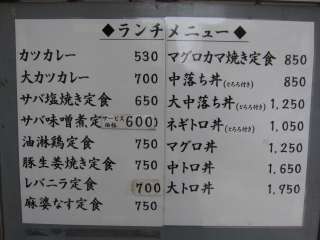 ◆ランチメニュー◆
カツカレー 530
大カツカレー 700
サバ塩焼き定食 650
サバ味噌煮定 サービス価格 600)
油淋鶏定食 750
豚生姜焼き定食 750
レバニラ定食 700
麻婆なす定食 750
マグロカマ焼き定食 850
中落ち丼(とろろ付き) 850
大中落ち丼(とろろ付き) 1,250
ネギトロ丼(とろろ付き) 1,050
マグロ丼 1,250
中トロ丼 1,650
大トロ丼 1,950